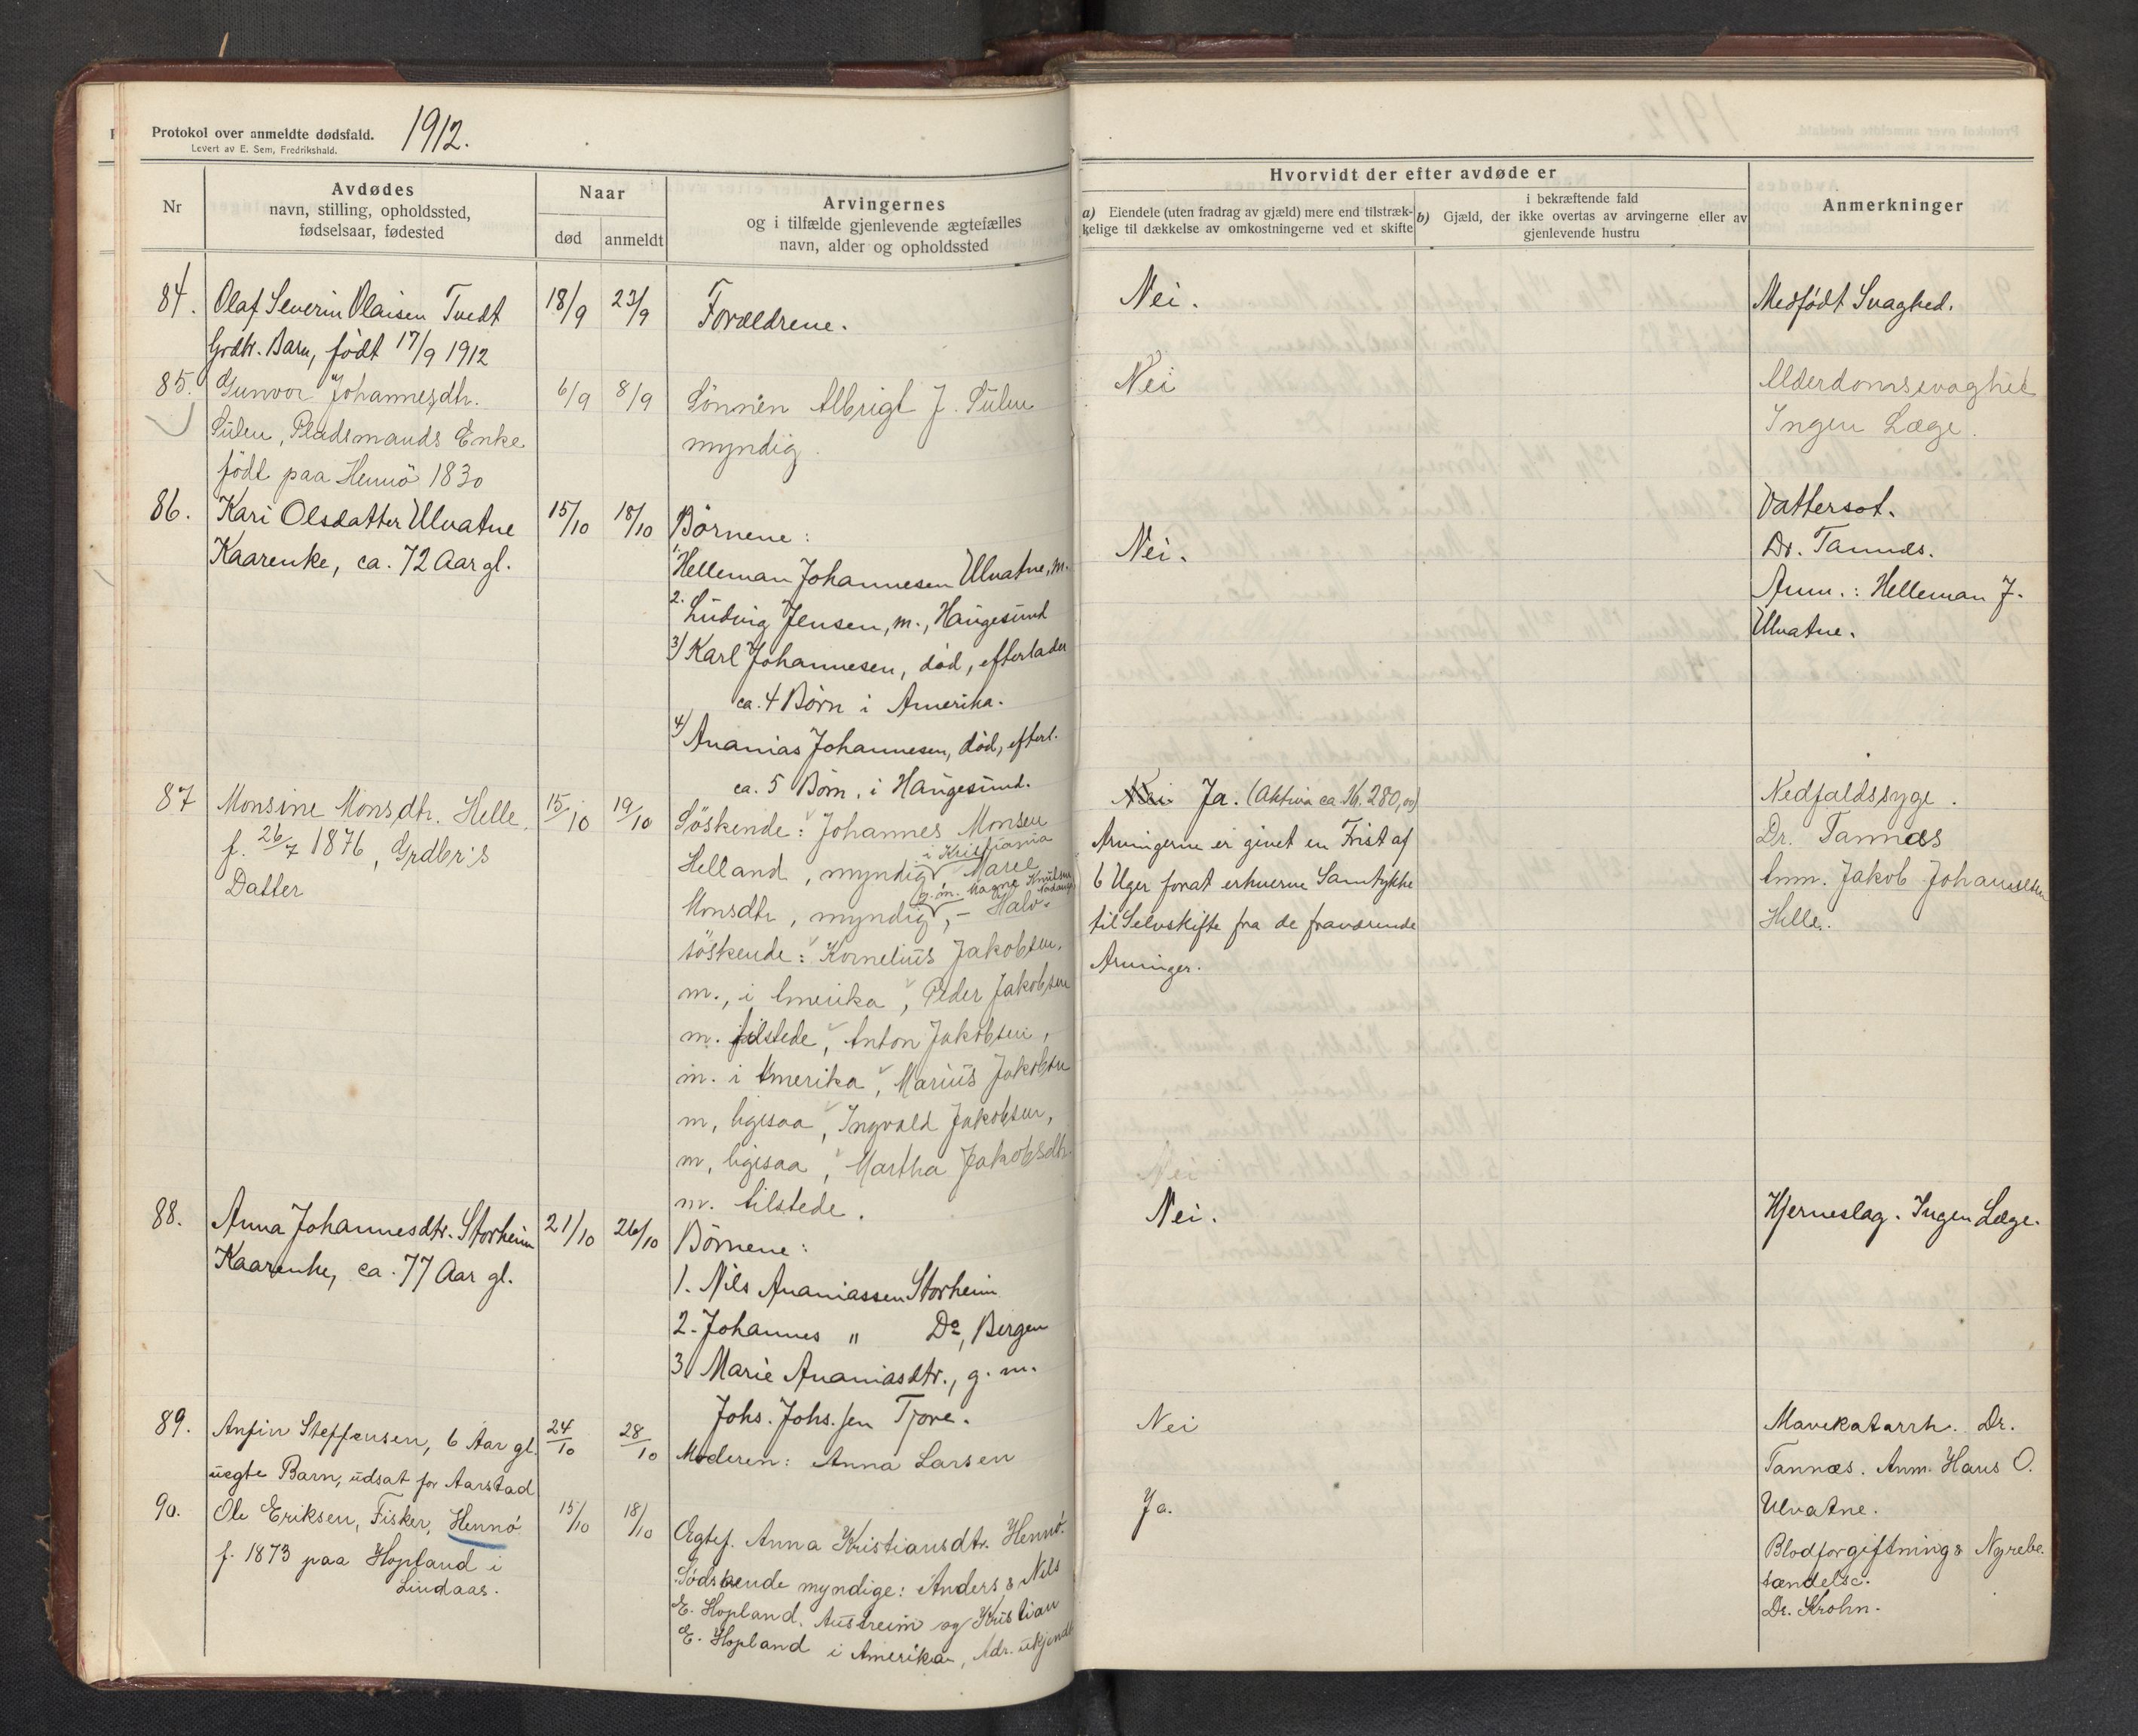 Protokol over anmeldte dødsfald. 1912.
Levert av E. Sem, Fredrikshald.
Nr
Avdødes
navn, stilling, opholdssted,
fødselsaar, fødested
Naar
død
anmeldt
Arvingernes
og i tilfælde gjenlevende ægtefælles
navn, alder og opholdssted
Hvorvidt der efter avdøde er
a) Eiendele (uten fradrag av gjæld) mere end tilstræk-
kelige til dækkelse av omkostningerne ved et skifte
i bekræftende fald
b) Gjæld, der ikke overtas av arvingerne eller av
gjenlevende hustru
Anmerkninger
84.
Olaf Severin Olaisen Tvedt
Grdbr. Barn, født 17/9 1912
18/9
23/9
Forældrene.
Nei.
Medfødt Svaghed.
85.
Gunvor Johannesdtr.
Sulen, Pladsmands Enke
født paa Hennö 1830
6/9
8/9
Sönnen Albrigt J. Sulen
myndig.
Nei
Alderdomssvaghed
Ingen Læge.
86.
Kari Olsdatter Ulvatne
Kaarenke, ca. 72 Aar gl.
15/10
18/10
Börnene:
1. Helleman Johannesen Ulvatne, m.
2. Ludvig Jensen, m., Haugesund
3) Karl Johannesen, död, efterlader
ca. 4 Børn i Amerika.
4) Ananias Johannesen, död, efterl.
ca. 5 Børn, i Haugesund.
Nei.
Vattersot.
Dr. Tannæs.
Anm.: Helleman J.
Ulvatne.
87
Monsine Monsdtr. Helle,
f. 26/7 1876, Grdbr's
Datter
15/10
19/10
Söskende: Johannes Monsen
i Kristiania
Helland, myndig, Maree
g. m. Magne Knutsen
Monsdtr, myndig, - Halv-
söskende: Kornelius Jakobsen,
m., i Amerika, Peder Jakobsen
m. tilstede, Anton Jakobsen,
m. i Amerika, Marius Jakobsen
m, ligesaa, Ingvald Jakobsen,
m, ligesaa, Martha Jakobsdtr.
m. tilstede.
Nei. Ja. (Aktiva ca. K. 280,00)
Arvingerne er givet en Frist af
6 Uger forat erhverve Samtykke
til Selvskifte fra de fraværende
Arvinger.
Nedfaldssyge.
Dr. Tannæs
Anm. Jakob Johannessen
Helle.
88.
Anna Johannesdtr. Storheim
Kaarenke, ca. 77 Aar gl.
21/10
26/10
Börnene:
1. Nils Ananiassen Storheim
2. Johannes " Do, Bergen
3) Marie Ananiasdtr., g. m.
Johs. Johs.sen Tjore.
Nei.
Hjerneslag. Ingen Læge.
89.
Anfin Steffensen, 6 Aar gl.
uegte Barn, udsat for Aarstad
24/10
28/10
Moderen: Anna Larsen
Nei
Mavekatarrh. Dr.
Tannæs. Anm. Hans O.
Ulvatne.
90.
Ole Eriksen, Fisker, Hennö
f. 1873 paa Hopland i
Lindaas.
15/10
18/10
Ægtef. Anna Kristiansdtr. Hennö.
Södskende myndige: Anders & Nils
E. Hopland. Austreim og Kristian
E. Hopland i Amerika, Adr. ukjendt
Ja.
Blodforgiftning & Nyrebe-
tændelse.
Dr. Krohn.